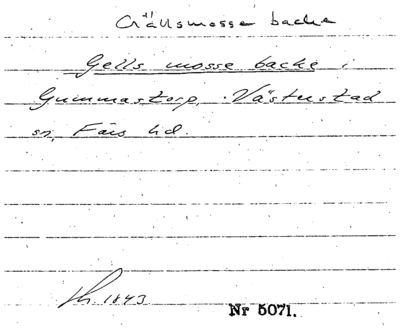 Gällsmosse backe
Gells mosse backe i
Gummastorp, Västerstad
sn, Färs hd.
1843
Nr 5071.